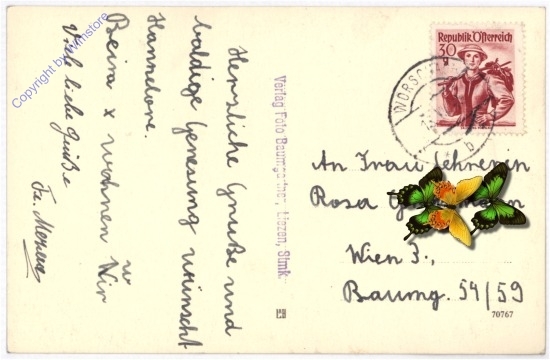 Copyright by Winstore
Herzliche Grüße und
baldige Genesung wünscht
Hannelore.
Beim x wohnen wir
Viele liebe Grüße
Fa.
Verlag Foto Baumgartner, Liezen, Stmk.
Republik Österreich
30
WÖRSCHA
b
An Frau Lehrerin
Rosa
Wien 3.,
Baumg. 54/59
70767